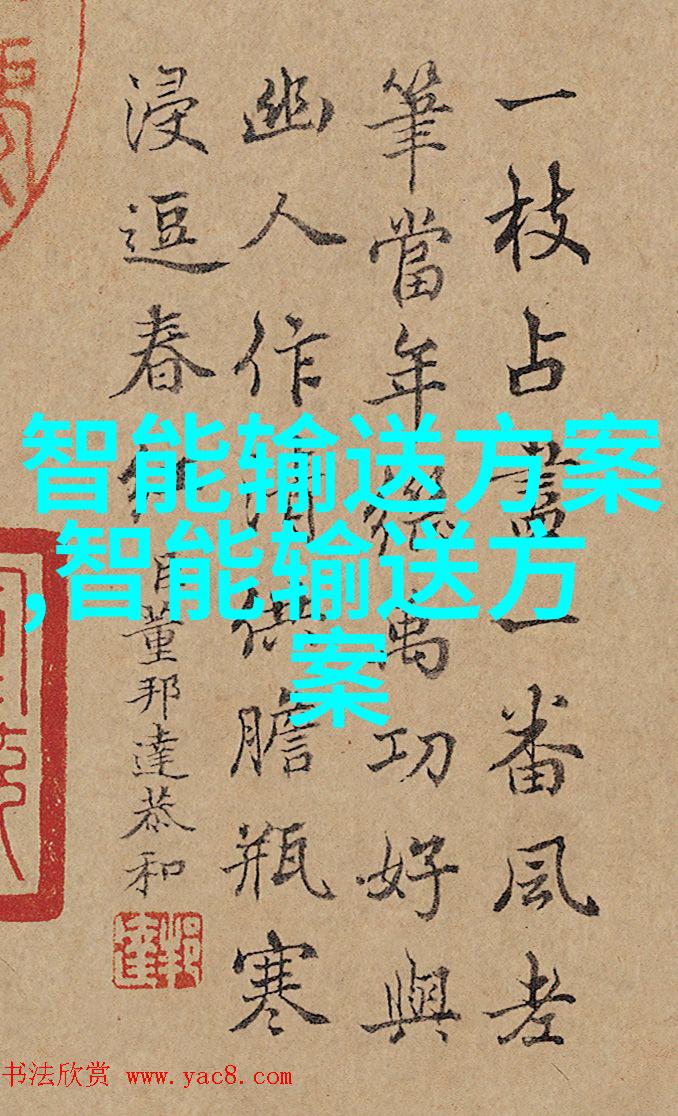 一枝占盡一番風老
筆當年功好與
幽人作清供膽瓶寒
浸逗春紅
臣董邦達恭和
邦達
智能输送方案
,智能输送方
案
书法欣赏 www.yac8.com